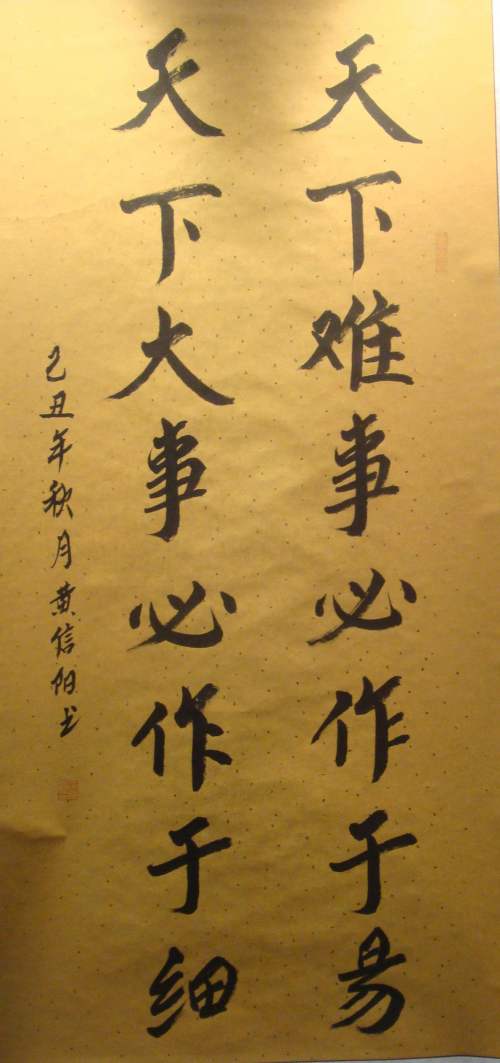 天下难事必作于易
天下大事必作于细
己丑年秋月黄信阳书